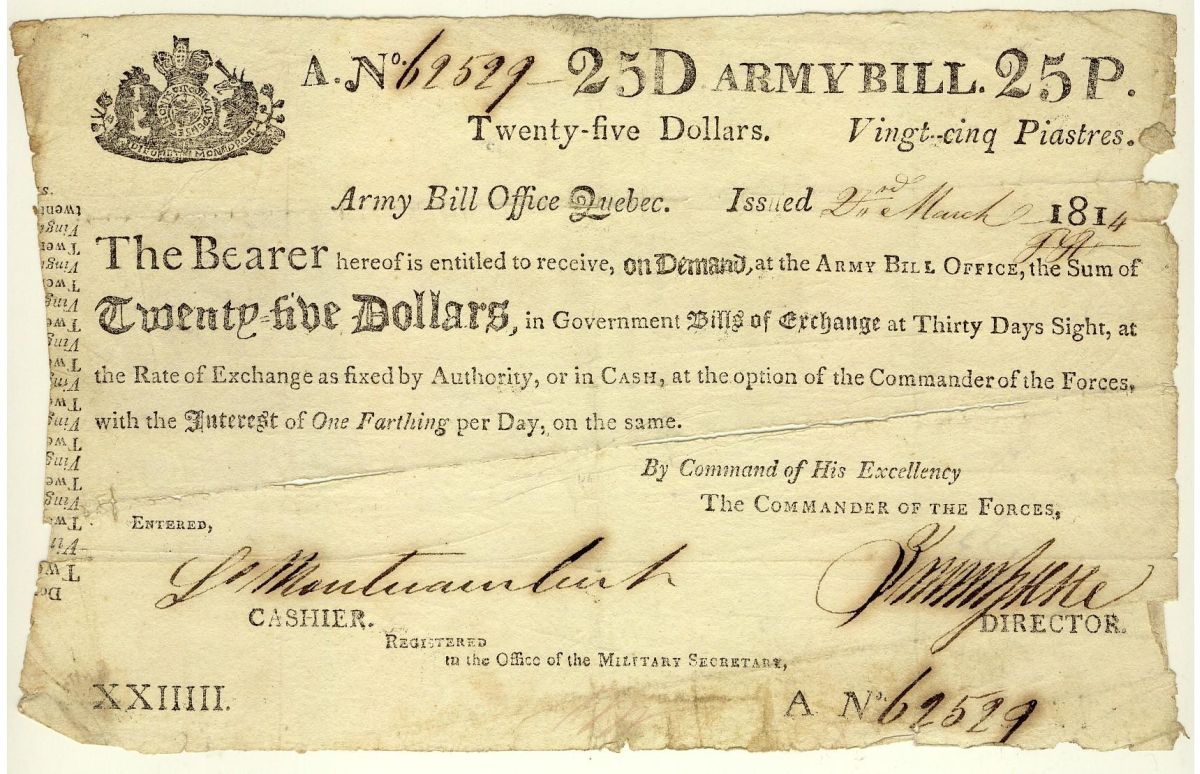 HONI SOIT QUI MAL Y PENSE
DIEU ET MON DROIT
A. No. 62529 25D ARMY BILL. 25P.
Twenty-five Dollars. Vingt-cinq Piastres.
Army Bill Office Quebec. Issued 2nd March 1814
The Bearer hereof is entitled to receive, on Demand, at the ARMY BILL OFFICE, the Sum of
Twenty-five Dollars, in Government Bills of Exchange at Thirty Days Sight, at
the Rate of Exchange as fixed by Authority, or in CASH, at the option of the Commander of the Forces,
with the Interest of One Farthing per Day, on the same.
By Command of His Excellency
The COMMANDER OF THE FORCES,
ENTERED,
CASHIER.
DIRECTOR.
REGISTERED
in the Office of the MILITARY SECRETARY,
XXIIIII.
A No. 62529